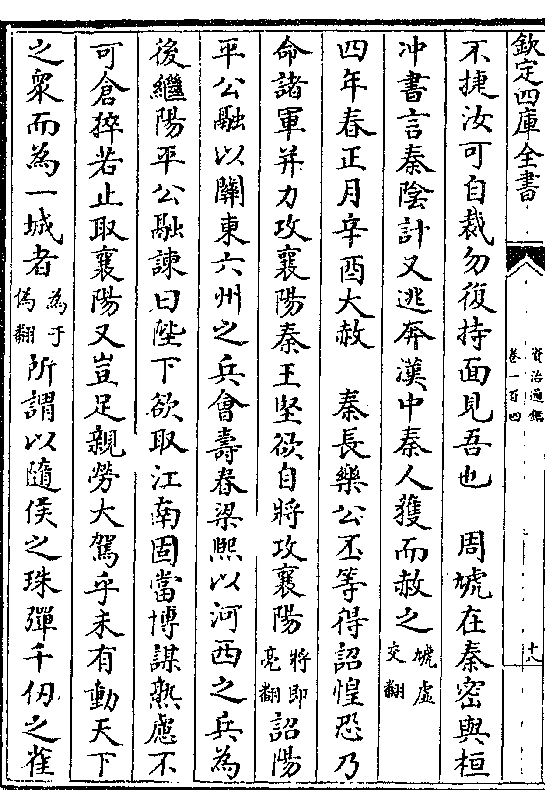 欽定四庫全書
資治通鑑
卷一百四
十八
不捷汝可自裁勿復持面見吾也　周虓在秦密與桓
冲書言秦陰計又逃奔漢中秦人獲而赦之虓虛交翻
四年春正月辛酉大赦　秦長樂公丕等得詔惶恐乃
命諸軍并力攻襄陽秦王堅欲自將攻襄陽將即亮翻詔陽
平公融以關東六州之兵會壽春梁熙以河西之兵為
後繼陽平公融諫曰陛下欲取江南固當博謀熟慮不
可倉猝若止取襄陽又豈足親勞大駕乎未有動天下
之衆而為一城者為于偽翻所謂以隨侯之珠彈千仞之雀